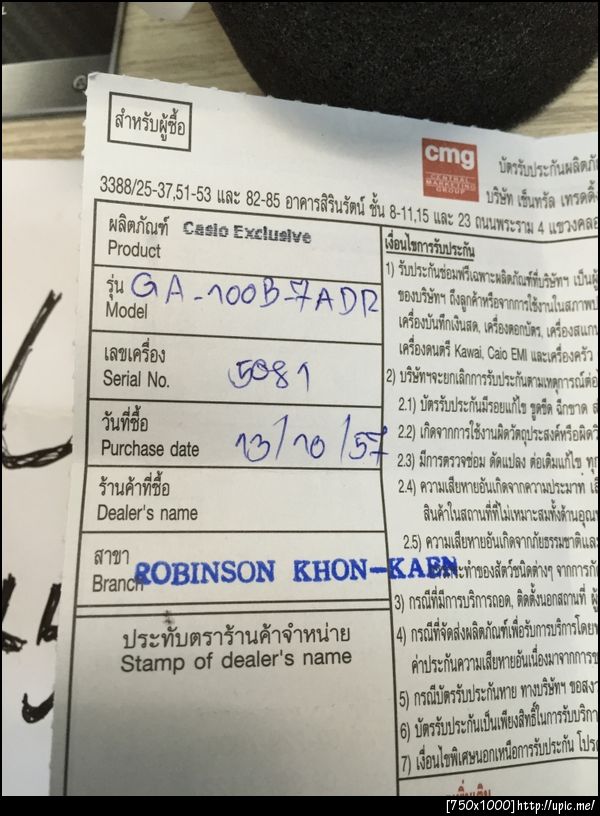 สำหรับผู้ซื้อ
cmg
CENTRAL
MARKETING
GROUP
บัตรรับประกันผลิตภั
บริษัท เซ็นทรัล เทรดดิ้
3388/25-37,51-53 และ 82-85 อาคารสิรินรัตน์ ชั้น 8-11,15 และ 23 ถนนพระราม 4 แขวงคลอ
ผลิตภัณฑ์ Casio Exclusive
Product
รุ่น GA-100B-7ADR
Model
เลขเครื่อง
Serial No. 5081
วันที่ซื้อ
Purchase date 13/10/57
ร้านค้าที่ซื้อ
Dealer's name
สาขา
Branch ROBINSON KHON-KAEN
ประทับตราร้านค้าจำหน่าย
Stamp of dealer's name
เงื่อนไขการรับประกัน
1) รับประกันซ่อมฟรีเฉพาะผลิตภัณฑ์ที่บริษัทฯ เป็นผู้
ของบริษัทฯ ถึงลูกค้าหรือจากการใช้งานในสภาพป
เครื่องบันทึกเงินสด, เครื่องตอกบัตร, เครื่องสแกน
เครื่องดนตรี Kawai, Caio EMI และเครื่องครัว
2) บริษัทฯจะยกเลิกการรับประกันตามเหตุการณ์ต่อ
2.1) บัตรรับประกันมีรอยแก้ไข ขูดขีด ฉีกขาด ส
2.2) เกิดจากการใช้งานผิดวัตถุประสงค์หรือผิดวิ
2.3) มีการตรวจซ่อม ดัดแปลง ต่อเติมแก้ไข ทุ
2.4) ความเสียหายอันเกิดจากความประมาท เลิ
สินค้าในสถานที่ที่ไม่เหมาะสมทั้งด้านอุณห
2.5) ความเสียหายอันเกิดจากภัยธรรมชาติและ
กระทำของสัตว์ชนิดต่างๆ จากการกั
3) กรณีที่มีการบริการถอด, ติดตั้งนอกสถานที่ ผู้
4) กรณีที่จัดส่งผลิตภัณฑ์เพื่อรับการบริการโดยท
ค่าประกันความเสียหายอันเนื่องมาจากการข
5) กรณีบัตรรับประกันหาย ทางบริษัทฯ ขอสงว
6) บัตรรับประกันเป็นเพียงสิทธิ์ในการรับบริกา
7) เงื่อนไขพิเศษนอกเหนือการรับประกัน โปร
[750x1000] http://upic.me/